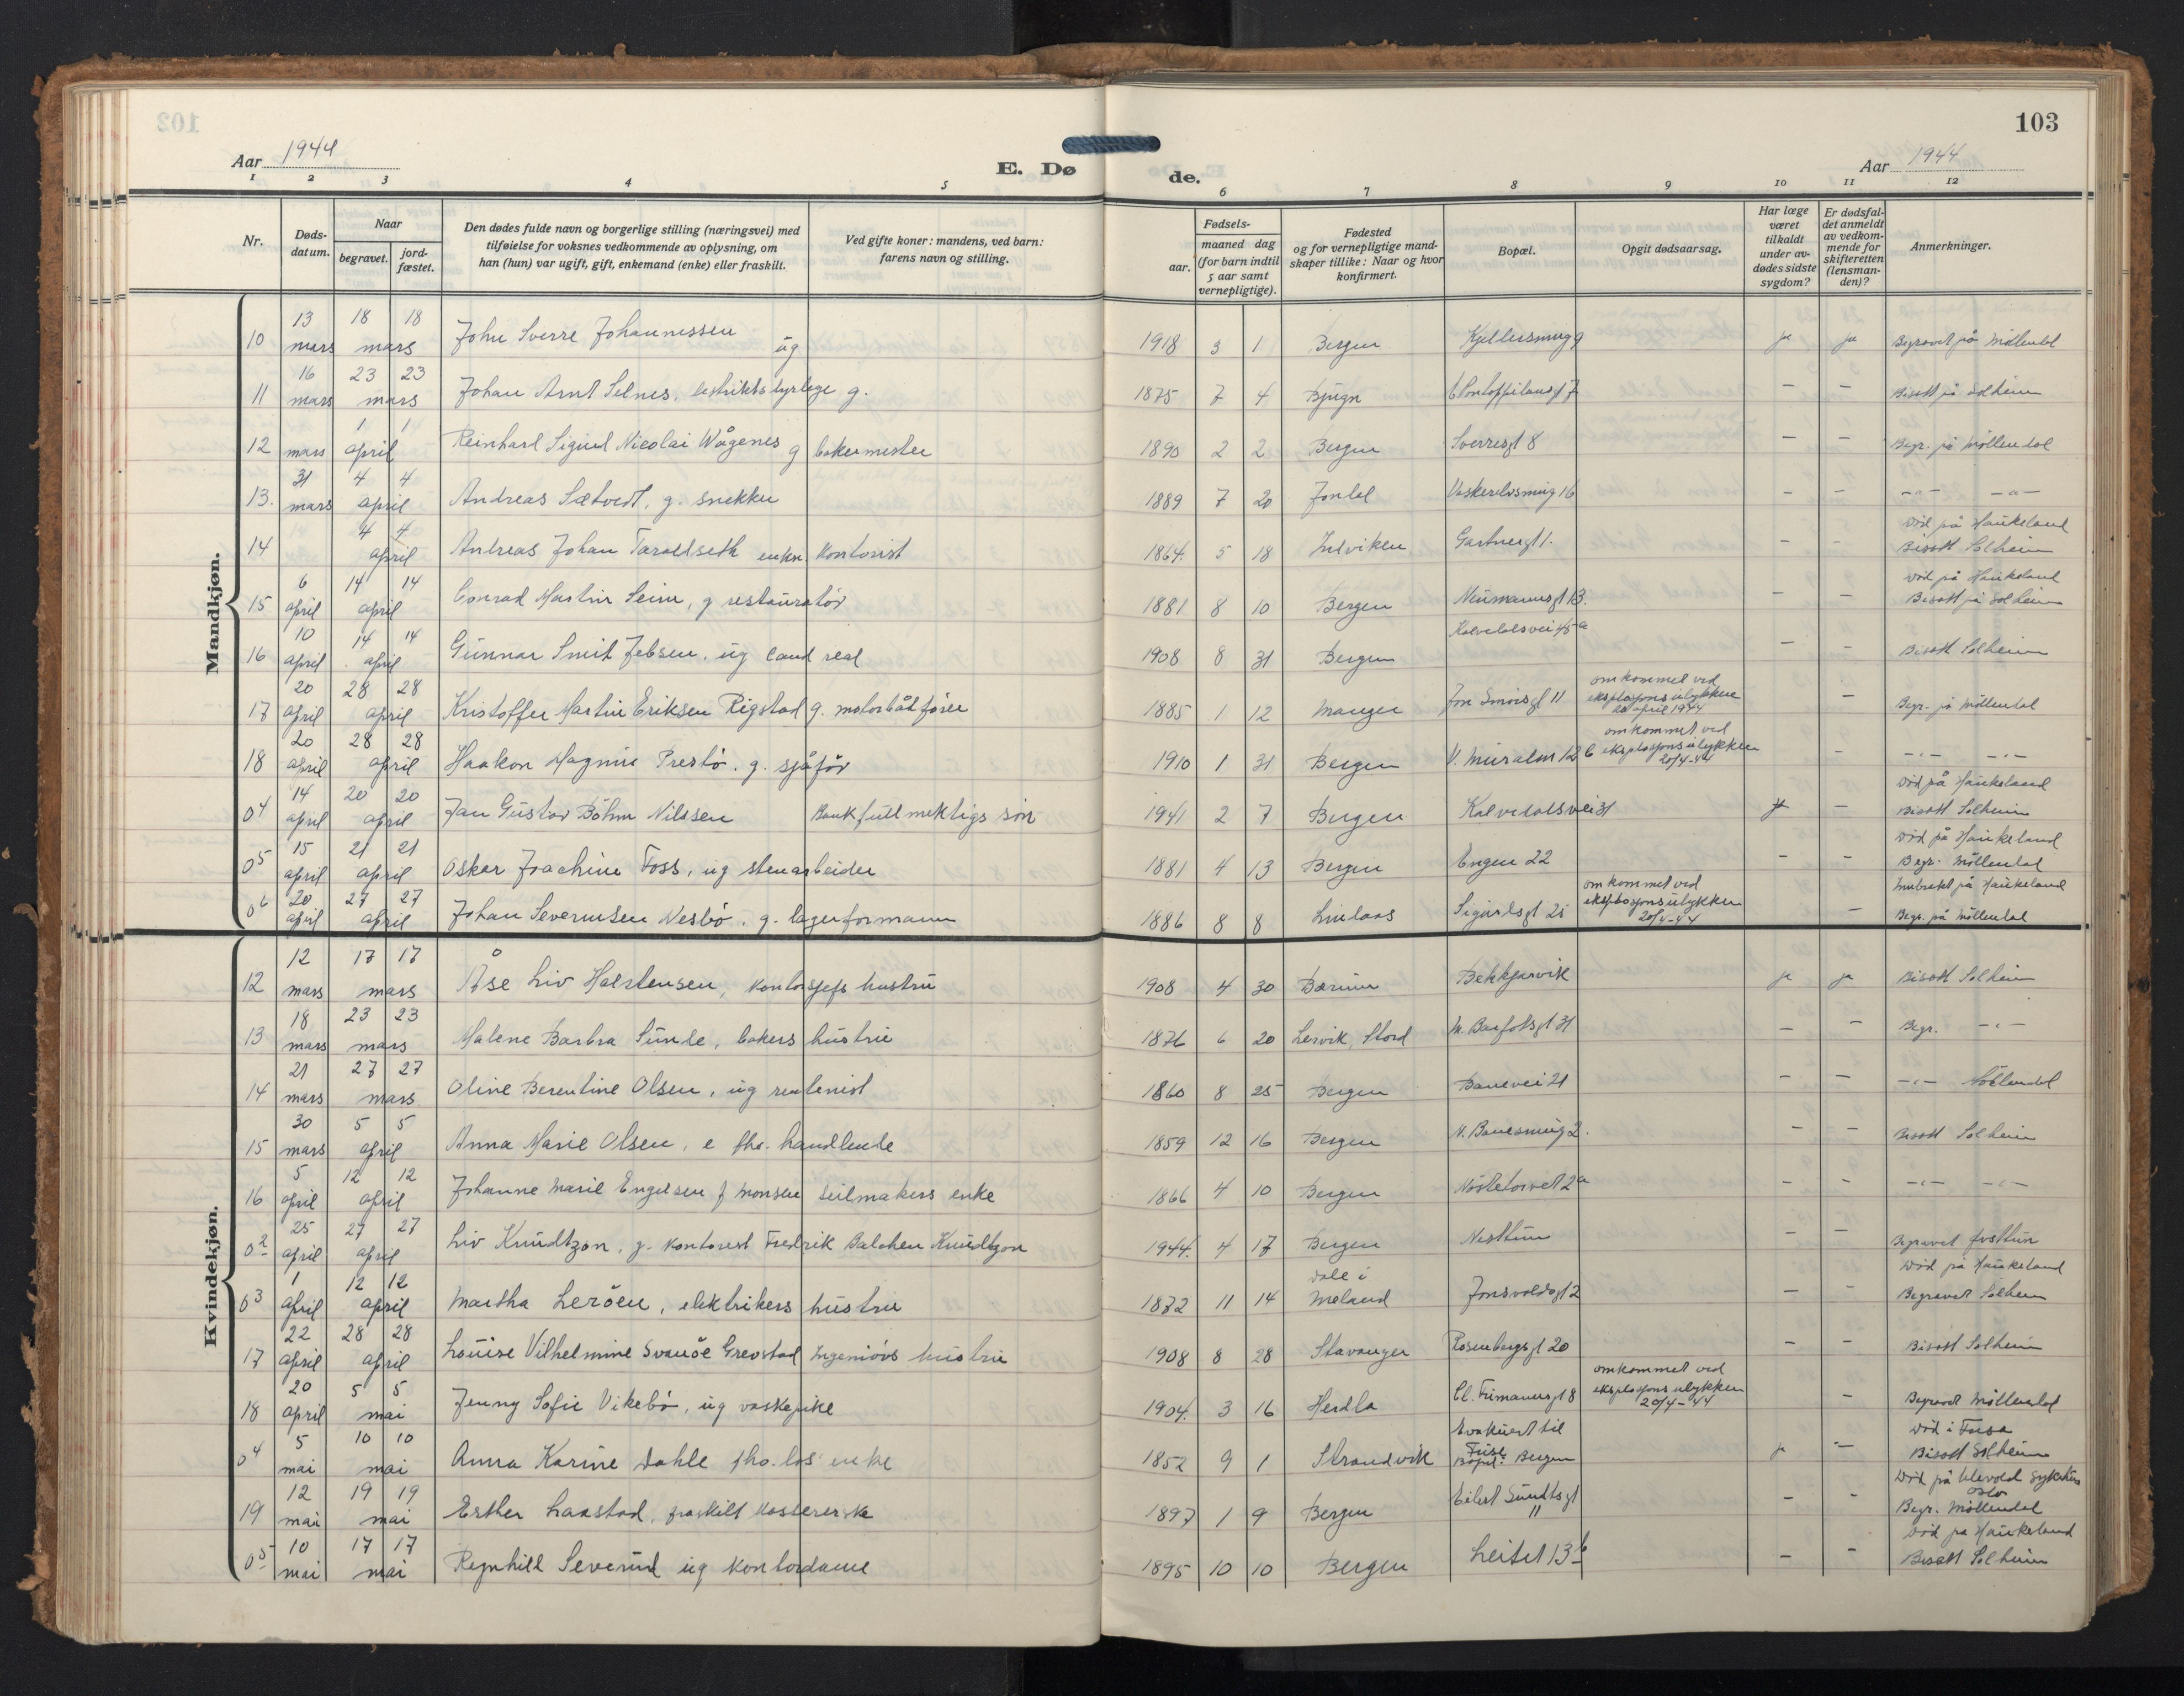 102
Aar 1944
E. Dø
de.
103
Aar 1944
1 2 3 4 5 6 7 8 9 10 11 12
Nr.
Døds-
datum.
Naar
begravet.
jord-
fæstet.
Den dødes fulde navn og borgerlige stilling (næringsvei) med
tilføielse for voksnes vedkommende av oplysning, om
han (hun) var ugift, gift, enkemand (enke) eller fraskilt.
Ved gifte koner: mandens, ved barn:
farens navn og stilling.
Fødsels-
aar.
maaned dag
(for barn indtil
5 aar samt
vernepligtige).
Fødested
og for vernepligtige mand-
skaper tillike: Naar og hvor
konfirmert.
Bopæl.
Opgit dødsaarsag.
Har læge
været
tilkaldt
under av-
dødes sidste
sygdom?
Er dødsfal-
det anmeldt
av vedkom-
mende for
skifteretten
(lensman-
den)?
Anmerkninger.
Mandkjøn.
10 13 mars 18 18 mars John Sverre Johannessen ug 1918 3 1 Bergen Kjellersmug 9 ja ja Begravet på Møllendal
11 16 mars 23 23 mars Johan Arnt Selnes, g. 1875 7 4 Bjugn 7 – – Bisatt på Solheim
12 mars 1 1 april Reinhard Sigurd Nicolai Wågenes g bakermester 1890 2 2 Bergen Sverresgt 8 – – Begr. på Møllendal
13. 31 mars 4 4 april Andreas Sætvedt, g. snekker 1889 7 20 Jondal Vaskerelvsmug 16 – – –"– –"–
14 4 4 april Andreas Johan Taraldseth enkm. kontorist 1864. 5 18 Indviken Gartnergt 1. – – Død på Haukeland
Bisatt Solheim
15 6 april 14 14 april Conrad Martin Seim, g restauratør 1881 8 10 Bergen Neumannsgt 13. – – Død på Haukeland
Bisatt på Solheim
16 10 april 14 14 april Gunnar Smit Jebsen, ug cand real 1908 8 31 Bergen Kalvedalsvei 45a – – Bisatt Solheim
17 20 april 28 28 april Kristoffer Martin Eriksen Rigstad g. motorbåtfører 1885 1 12 Manger Jon Smørsgt 11 omkommet ved
eksplosjonsulykken
20 april 1944 – Begr. på Møllendal
18 20 april 28 28 april Haakon Magnus Prestø. g. sjåfør 1910 1 31 Bergen V. Muralm 12 b omkommet ved
eksplosjonsulykken
20/4-44 – –"– –"–
04 14 april 20 20 april Jan Gustav Böhm Nilssen Bankfullmektigs sön 1941 2 7 Bergen Kalvedalsvei 31 – Død på Haukeland
Bisatt Solheim
05 15 april 21 21 april Oskar Joachim Foss, ug stenarbeider 1881 4 13 Bergen Engen 22 – – Død på Haukeland
Begr. Møllendal
06 20 april 27 27 april Johan Severinsen Nesbø. g. lagerformann 1886 8 8 Lindaas Sigurdsgt 25 omkommet ved
eksplosjonsulykken
20/4-44 – Innbrakt på Haukeland
Begr. på Møllendal
Kvindekjøn.
12 12 mars 17 17 mars Åse Liv Halstensen, kontorsjefs hustru 1908 4 30 Bærum Bekkjarvik ja ja Bisatt Solheim
13 18 mars 23 23 mars Malene Barbra Sunde, bakers hustru 1876 6 20 Lervik, Stord M. Barfotsgt 31 – – Begr. –"–
14 21 mars 27 27 mars Oline Berentine Olsen, ug rentenist 1860 8 25 Bergen Banevei 21 – – –"– Møllendal
15 30 mars 5 5 april Anna Marie Olsen, e fhv. handlende 1859 12 16 Bergen 2. – – Bisatt Solheim
16 5 april 12 12 april Johanne Marie Engelsen f Monsen seilmakers enke 1866 4 10 Bergen Nøstetorvet 2a – – –"– –"–
02 25 april 27 27 april Liv Knudtzon, g. kontorist Fredrik Balchen Knudtzon 1944. 4 17 Bergen Nesttun – – Begravet Fosttun
03 1 april 12 12 april Martha Lerøen, elektrikers hustru 1872 11 14 Dale i
Meland Jonsvoldsgt 2 – – Død på Haukeland
Begravet Solheim
17 22 april 28 28 april Louise Vilhelmine Svanøe Grevstad Ingeniørs hustru 1908 8 28 Stavanger Rosenbergsgt 20 – – Bisatt Solheim
18 20 april 5 5 mai Jenny Sofie Vikebø, ug vaskepike 1904. 3 16 Herdla Cl. Frimannsgt 8 omkommet ved
eksplosjonsulykken
20/4-44 – Begravet Møllendal
04 5 mai 10 10 mai Anna Karine Dahle fhv. los enke 1852 9 1 Strandvik Evakuert til
Fuse
Bopel: Bergen ja – Død i Fusa
Bisatt Solheim
19 12 mai 19 19 mai Esther Laastad, fraskilt kassererske 1897 1 9 Bergen Eilert Sundtsgt
11 – – Død på Ulevold Sykehus
Oslo
Begr. Møllendal
05 10 mai 17 17 mai Ragnhild Severud ug kontordame 1895 10 10 Bergen Leitet 13b – – Død på Haukeland
Bisatt Solheim